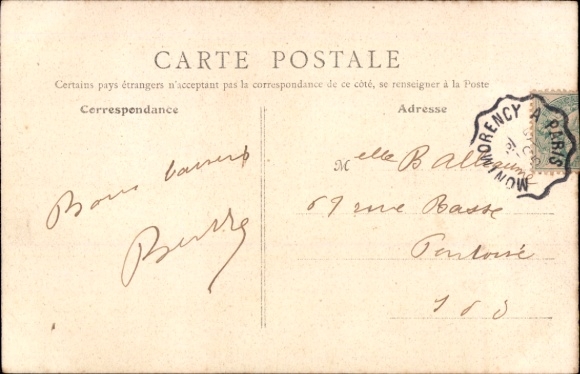 CARTE POSTALE
Certains pays étrangers n'acceptant pas la correspondance de ce côté, se renseigner à la Poste
Correspondance
Adresse
MONTMORENCY A PARIS
Bons baisers
Melle B
69 rue Basse
Pontoise
S O